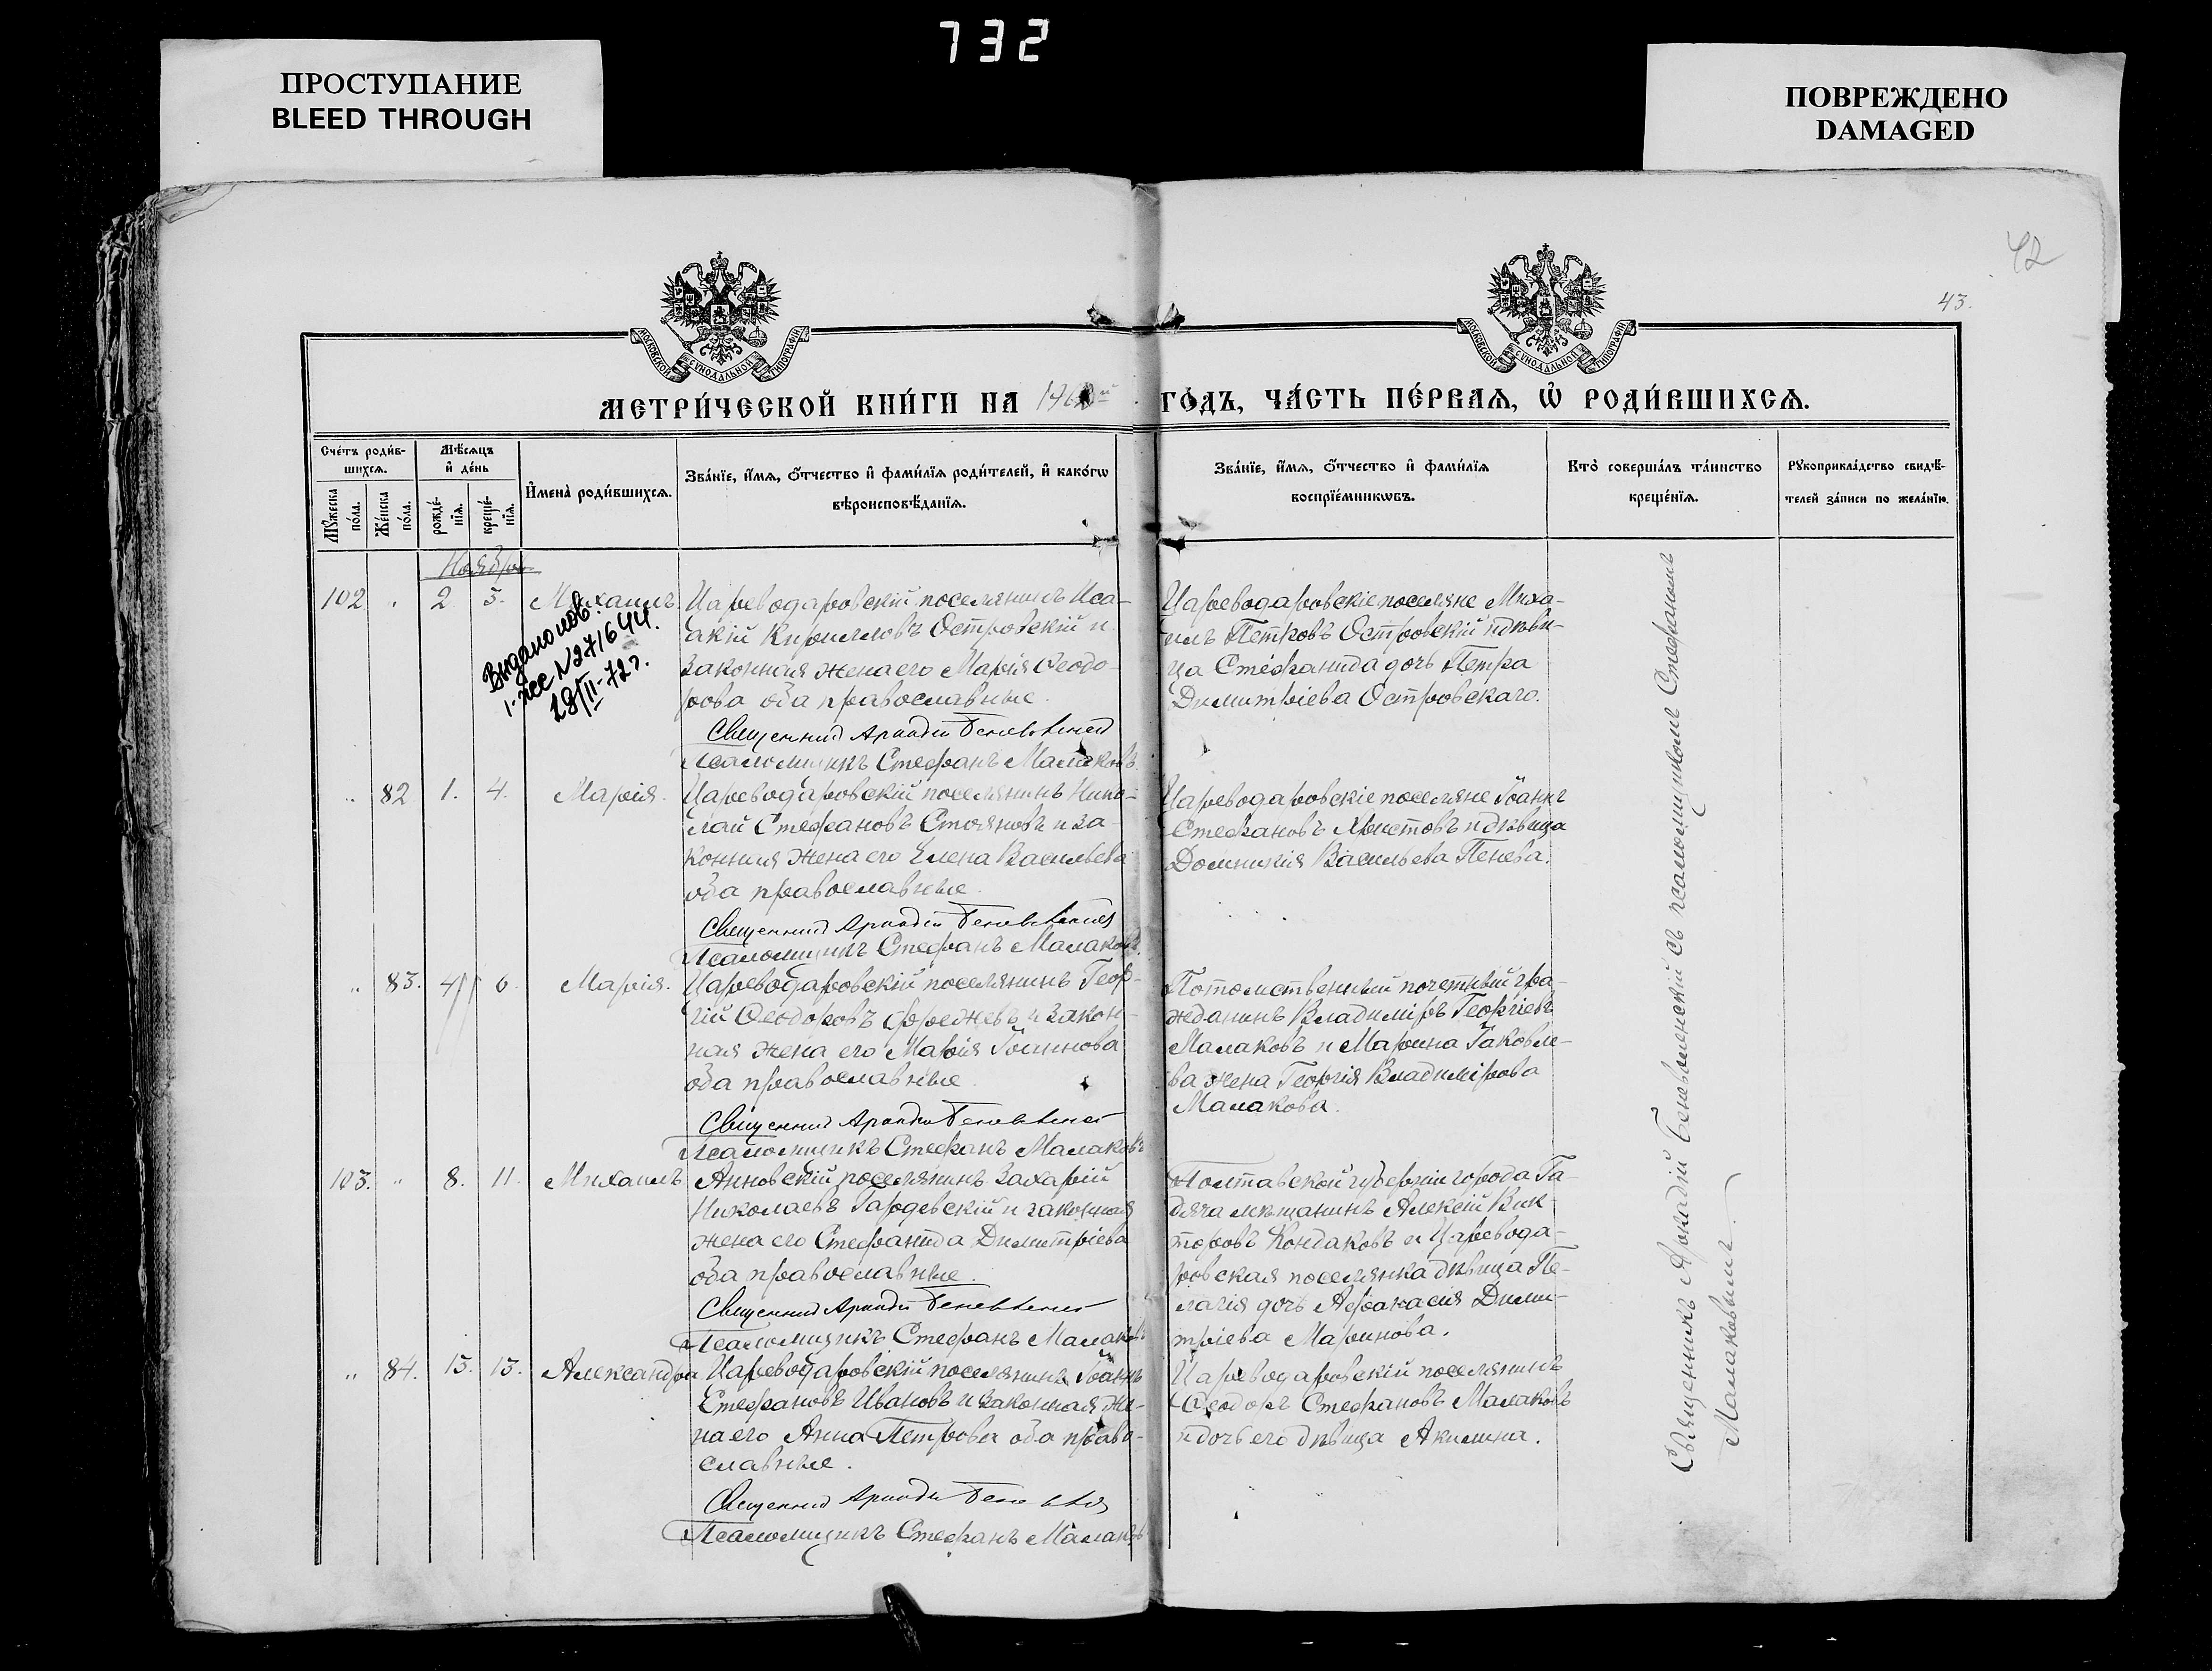 732
ПРОСТУПАНИЕ
BLEED THROUGH
ПОВРЕЖДЕНО
DAMAGED
42
43.
МОСКОВСКОЙ СѴНОДАЛЬНОЙ ТИПОГРАФІИ
МОСКОВСКОЙ СѴНОДАЛЬНОЙ ТИПОГРАФІИ
МЕТРИ́ЧЕСКОЙ КНИ́ГИ НА ГО́ДЪ, ЧА́СТЬ ПЕ́РВАѦ, Ѡ҆ РОДИ́ВШИХСѦ.
Сче́тъ роди́в-
шихсѧ.
Мꙋ́жеска по́ла.
Же́нска по́ла.
Мѣ́сѧцъ
и҆ де́нь
рожде́-
нїѧ.
креще́-
нїѧ.
И҆мена̀ роди́вшихсѧ.
Зва́нїе, и҆́мѧ, ѻ҆́тчество и҆ фами́лїѧ роди́телей, и҆ како́гѡ
вѣроисповѣ́данїѧ.
Зва́нїе, и҆́мѧ, ѻ҆́тчество и҆ фами́лїѧ
воспрїе́мникѡвъ.
Кто̀ соверша́лъ та́инство
креще́нїѧ.
Рꙋкоприкла́дство свидѣ́-
телей за́писи по жела́нїю.
Ноябрь
102 " 2 5. Михаилъ.
Выдано пов.
28/II-72 г.
Цареводаровскій поселянинъ Иса-
акій Кирилловъ Островскій и
законная жена его Марія Ѳеодо-
рова оба православные.
Священникъ Аркадій Беневоленскій
Псаломщикъ Стефанъ Малаковъ.
Цареводаровскіе поселяне Миха-
илъ Петровъ Островскій и дѣви-
ца Стефанида дочь Петра
Димитріева Островскаго.
" 82 1. 4. Марія.
Цареводаровскій поселянинъ Нико-
лай Стефановъ Стояновъ и за-
конная жена его Елена Васильева
оба православные.
Священникъ Аркадій Беневоленскій
Псаломщикъ Стефанъ Малаковъ.
Цареводаровскіе поселяне Іоаннъ
Стефановъ Христовъ и дѣвица
Домникія Васильева Пенева.
" 83. 4 6 Марія.
Цареводаровскій поселянинъ Геор-
гій Ѳеодоровъ и закон-
ная жена его Марія Іоаннова
оба православные.
Священникъ Аркадій Беневоленскій
Псаломщикъ Стефанъ Малаковъ
Потомственный почетный гра-
жданинъ Владиміръ Георгіевъ
Малаковъ и Марина Іаковле-
ва жена Георгія Владимірова
Малакова.
103. " 8. 11. Михаилъ
Анновскій поселянинъ Захарій
Николаевъ и законная
жена его Стефанида Димитріева
оба православные.
Священникъ Аркадій Беневоленскій
Псаломщикъ Стефанъ Малаковъ
Полтавской губерніи города Га-
дяча мѣщанинъ Алексій Вик-
торовъ Кондаковъ и Цревода-
ровская поселянка дѣвица Пе-
лагія дочь Аѳанасія Дими-
тріева Маринова.
" 84. 13. 13. Александра
Цареводаровскій поселянинъ Іоаннъ
Стефановъ Ивановъ и законная же-
на его Анна Петрова оба право-
славные.
Священникъ Аркадій
Псаломщикъ Стефанъ Малаковъ
Цареводаровскій поселянинъ
Ѳеодоръ Стефановъ Малаковъ
и дочь его дѣвица Акилина.
Священникъ Аркадій Беневоленскій съ псаломщикомъ Стефаномъ
Малаковымъ.